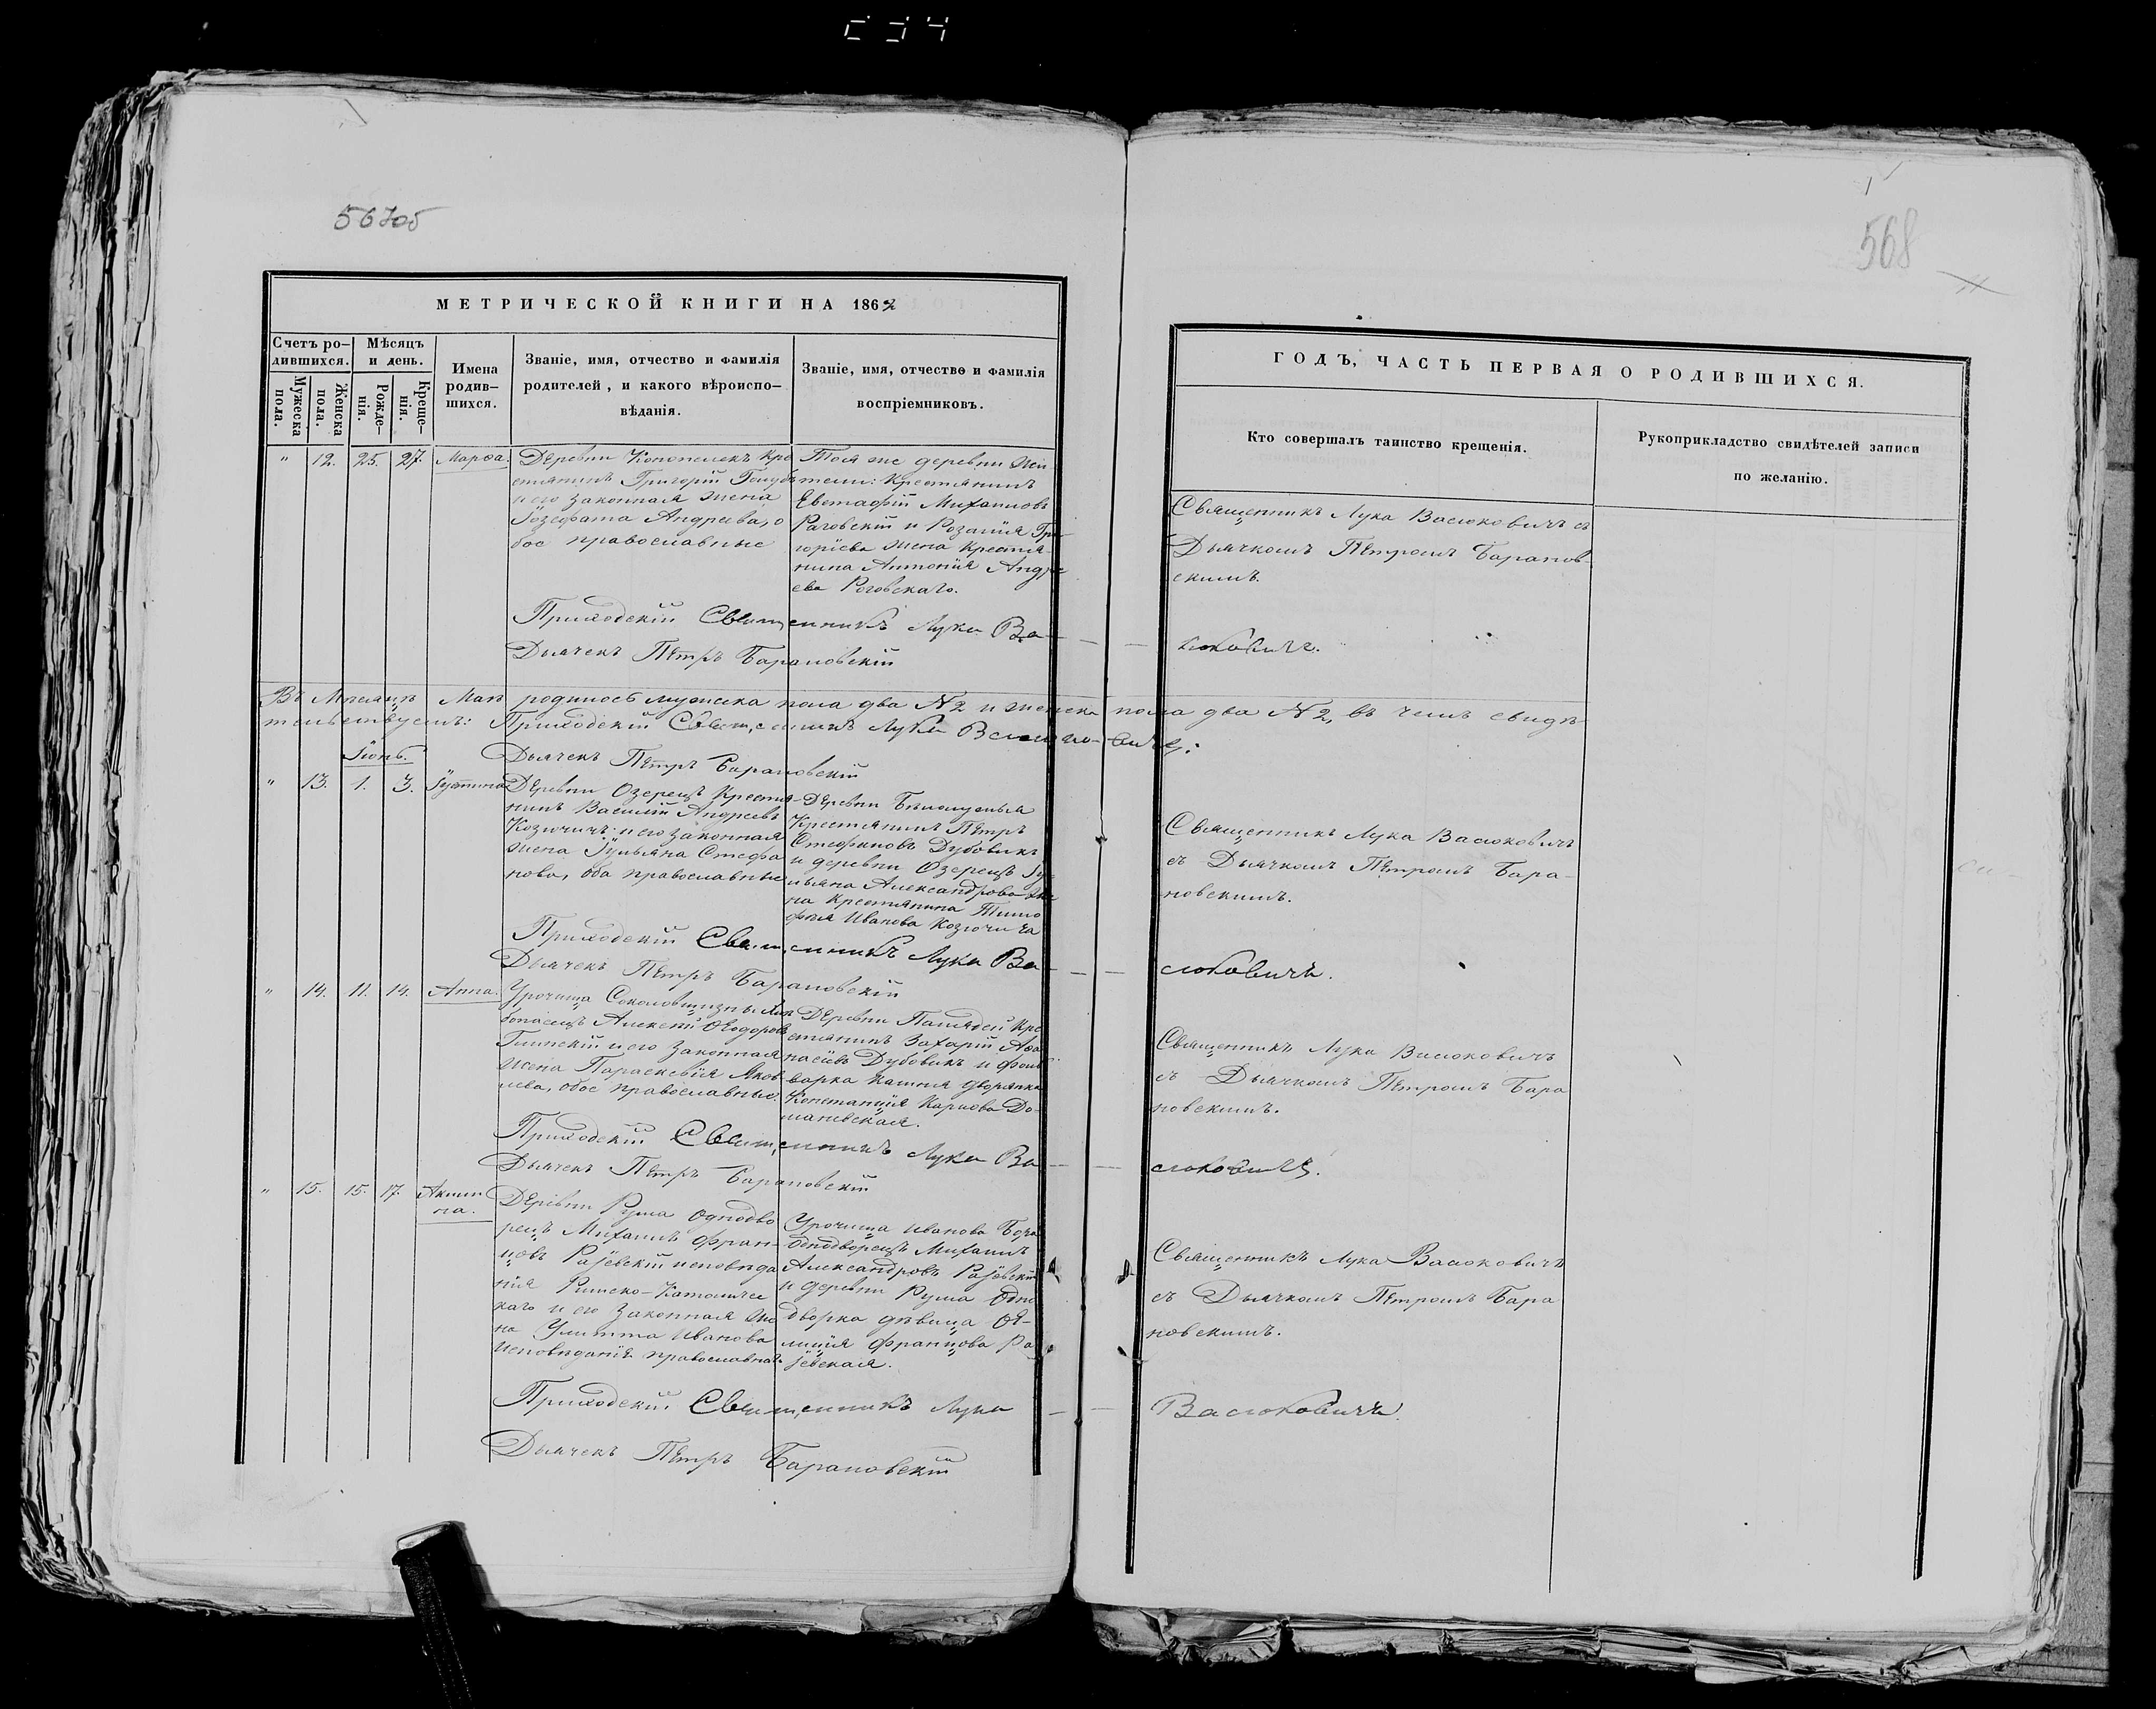 567об
568
МЕТРИЧЕСКОЙ КНИГИ НА 1862
Счетъ ро-
дившихся.
Мѣсяцъ
и день.
Мужеска
пола.
Женска
пола.
Рожде-
нія.
Креще-
нія.
Имена
родив-
шихся.
Званіе, имя, отчество и фамилія
родителей, и какого вѣроиспо-
вѣданія.
Званіе, имя, отчество и фамилія
воспріемниковъ.
ГОДЪ, ЧАСТЬ ПЕРВАЯ О РОДИВШИХСЯ.
Кто совершалъ таинство крещенія.
Рукоприкладство свидѣтелей записи
по желанію.
" 12. 25. 27. Марѳа.
Деревни Конопелекъ Кре
стянинъ Григорій
и его законная жена
Іозефата Андреева, о
бое православные
Тоя же деревни жи
тели: Крестянинъ
Евстафій Михаиловъ
Раговскій и Розалія Гри
горіева жена крестя
нина Антонія Андре
ева Роговскаго.
Священникъ Лука Васюковичъ съ
Дьячкомъ Петромъ Баранов-
скимъ.
Приходскій Священникъ Лука Ва-
сюковичъ.
Дьячекъ Петръ Барановскій
Въ Мѣсяцѣ Маѣ родилось мужеска пола два №2 и женска пола два №2, въ чемъ свидѣ-
тельствуемъ: Приходскій Священникъ Лука Васюковичъ.
Дьячекъ Петръ Барановскій
Іюнь.
" 13. 1. 3. Іустина
Деревни Озерецъ Крестя-
нинъ Василій Андреевъ
Козючичъ и его законная
жена Іульяна Стефа
нова, оба православные
Деревни Бѣлодуелья
Крестянинъ Петръ
Стефановъ Дубовикъ
и деревни Озерецъ Іу-
льяна Александрова же
на крестянина Тимо
фея Иванова Козючича
Священникъ Лука Васюковичъ
съ Дьячкомъ Петромъ Бара-
новскимъ.
Приходскій Священникъ Лука Ва-
сюковичъ.
Дьячекъ Петръ Барановскій
" 14. 11. 14. Анна.
Урочища Соколовщизны Хлѣ
бопаецъ Алексѣй Ѳеодоровъ
Глинскій и его законная
жена Параскевія Яков
лева, обое православные.
Деревни Пашядей Кре
стянинъ Захарій Аѳа
насіевъ Дубовикъ и фоль
варка Кашня дворянка
Констанція Карлова До-
мановская.
Священникъ Лука Васюковичъ
съ Дьячкомъ Петромъ Бара
новскимъ.
Приходскій Священникъ Лука Ва-
сюковичъ.
Дьячекъ Петръ Барановскій
" 15. 15. 17. Акили
на.
Деревни Рума Однодво
рецъ Михаилъ Фран-
цовъ Раіевскій исповѣда
нія Римско-Католичес
каго и его законная же
на Улитта Иванова
исповѣданія православнаго.
Урочища Иванова Бора
однодворецъ Михаилъ
Александровъ Раіевскій
и деревни Рума Одно
дворка дѣвица Ѳе-
лиція Францова Ра
іевская.
Священникъ Лука Васюковичъ
съ Дьячкомъ Петромъ Бара
новскимъ.
Приходскій Священникъ Лука
Васюковичъ.
Дьячекъ Петръ Барановскій